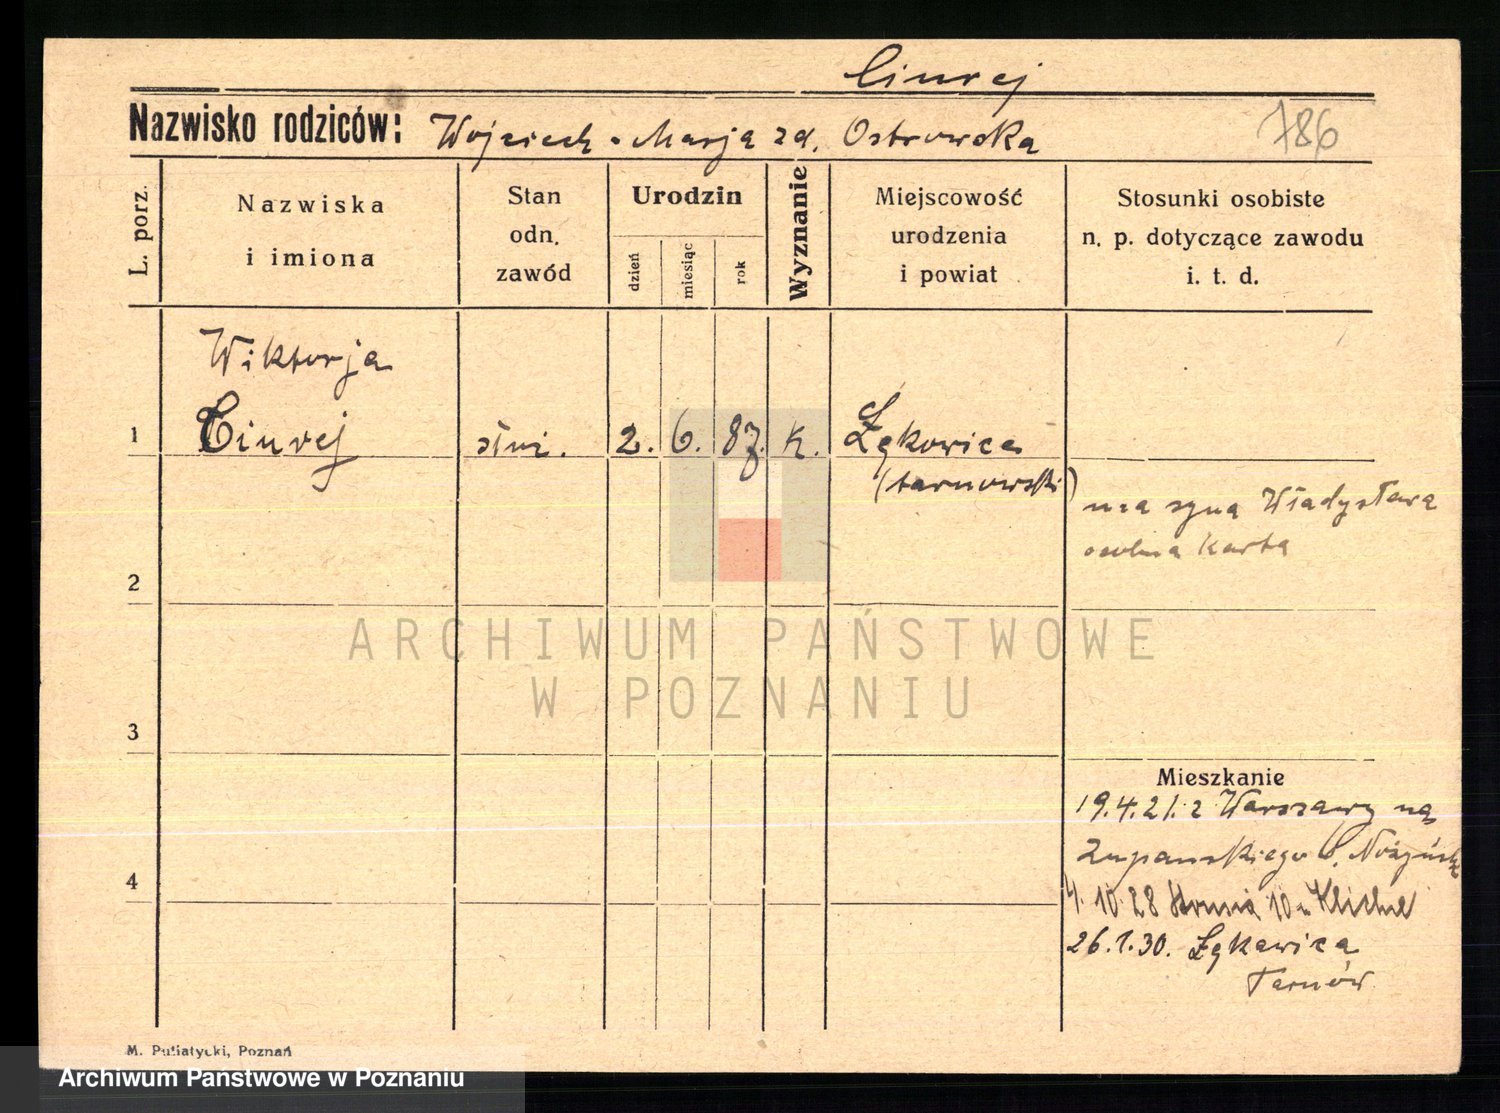 Ciurej
Nazwisko rodziców: Wojciech - Marja zd. Ostrowska
786
L. porz.
Nazwiska
i imiona
Stan
odn.
zawód
Urodzin
dzień
miesiąc
rok
Wyznanie
Miejscowość
urodzenia
i powiat
Stosunki osobiste
n. p. dotyczące zawodu
i. t. d.
Wiktorja
1 Ciurej służ. 2. 6. 87. k. Łękowica
(tarnowski)
ma syna Władysława
osobna karta
2
ARCHIWUM PAŃSTWOWE
W POZNANIU
3
Mieszkanie
19.4.21. z Warszawy na
Żupańskiego
4
4.10.28 10
26.1.30. Łękawica
Tarnów
M. Putiatycki, Poznań
Archiwum Państwowe w Poznaniu